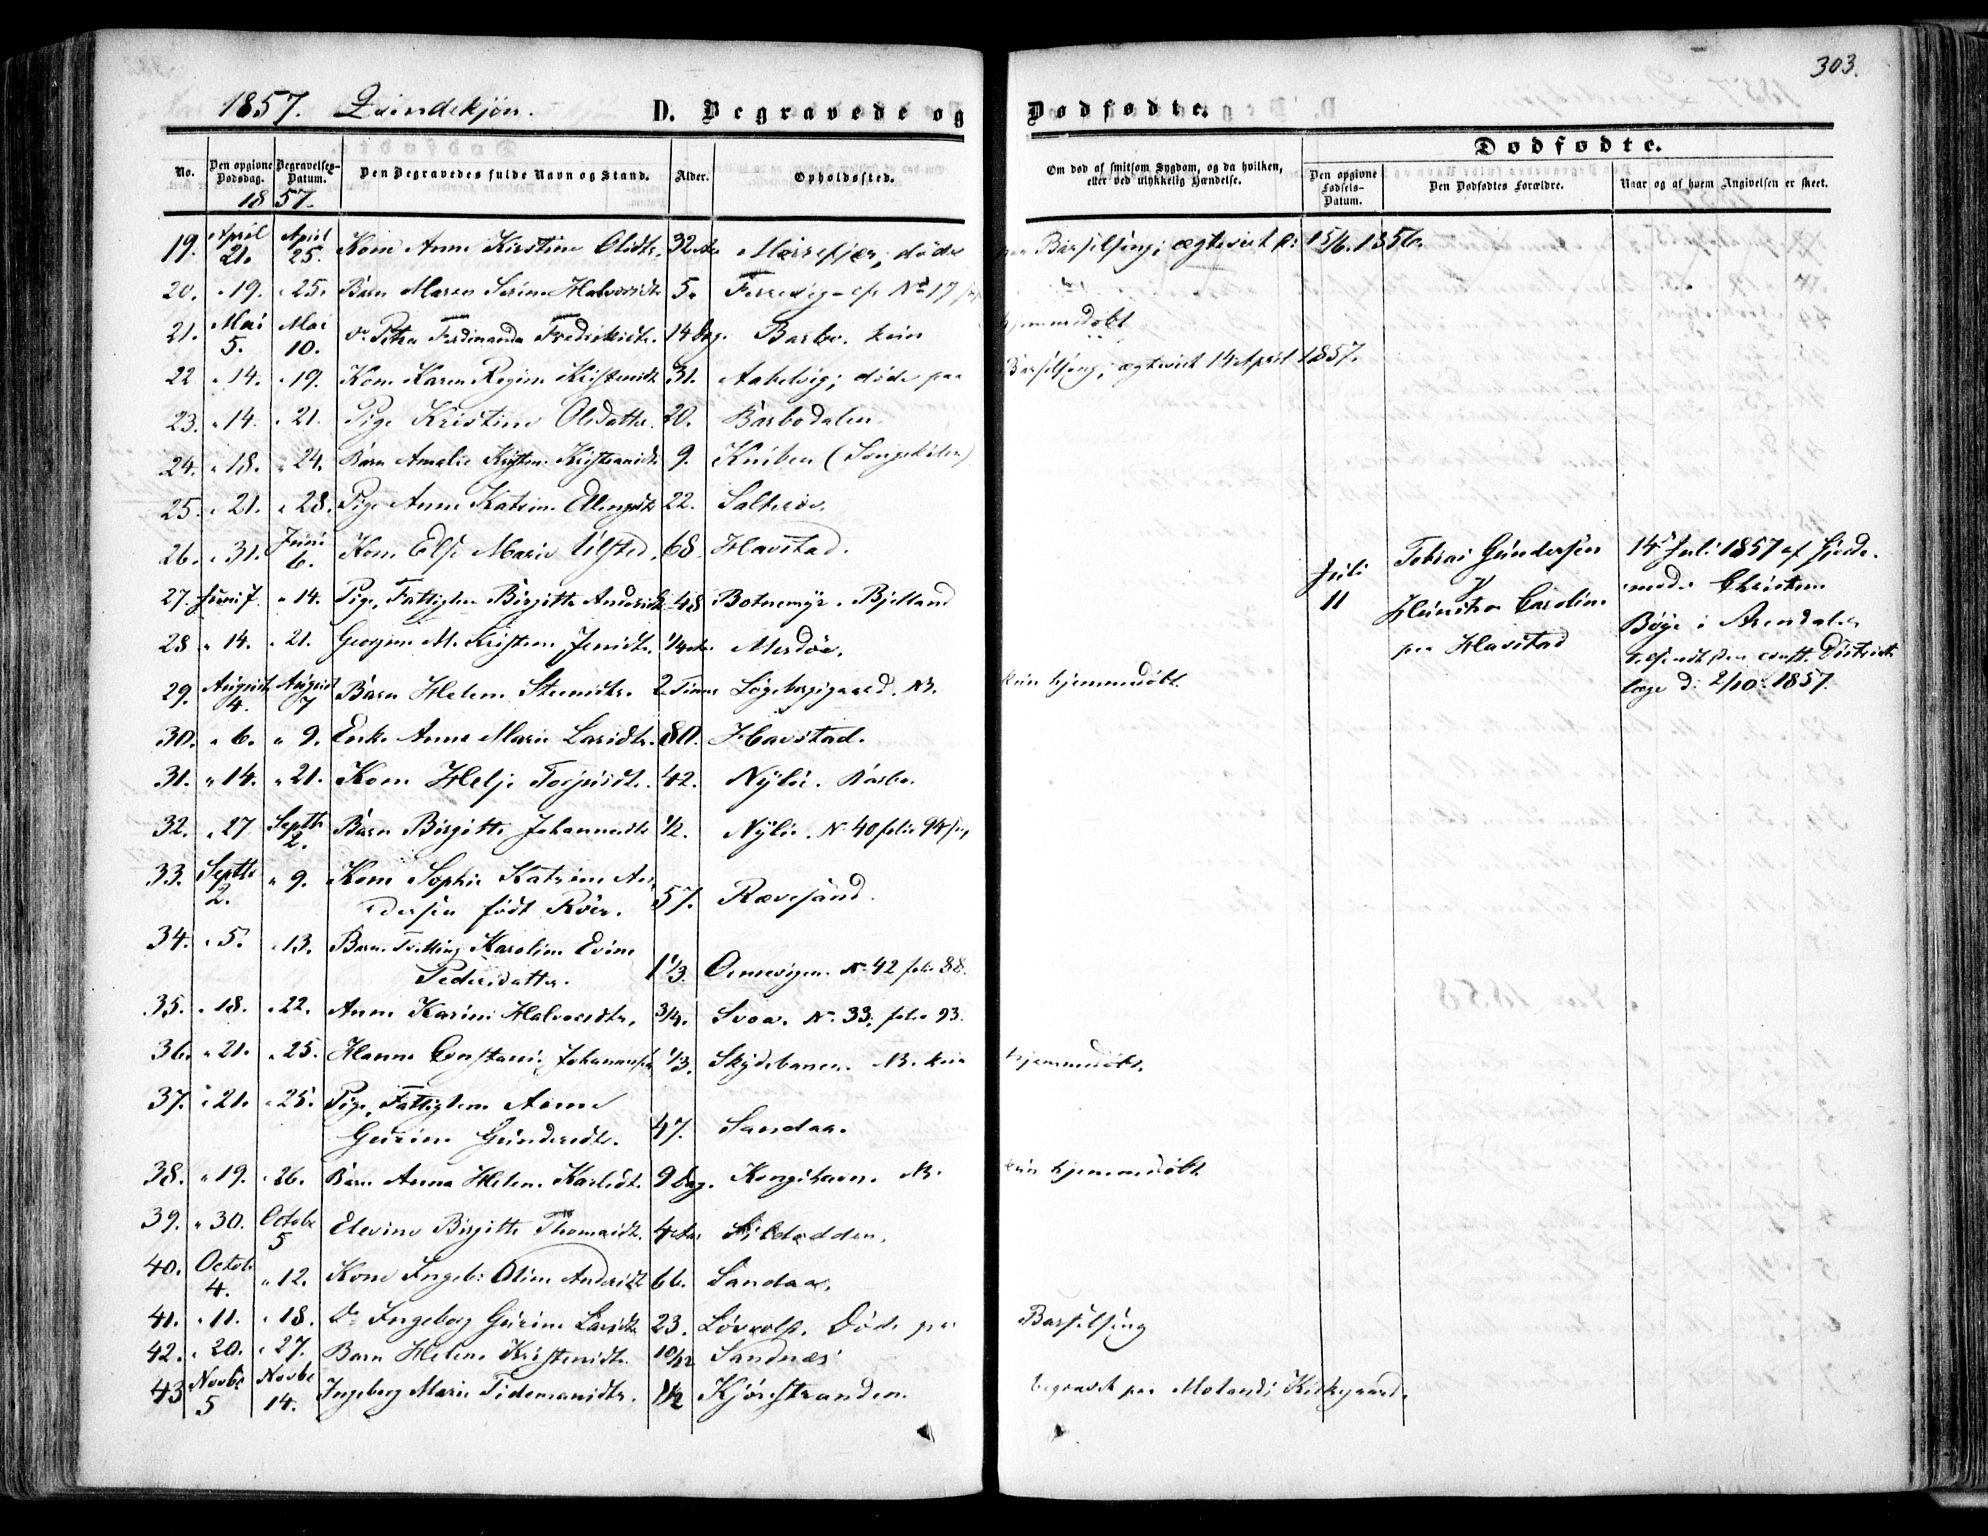 303.
1857. Qvindekjøn. D. Begravede og Dødfødte.
No. Den opgivne Dødsdag. Begravelses-Datum. Den Begravedes fulde Navn og Stand. Alder. Opholdssted. Om død af smitsom Sygdom, og da hvilken, eller ved ulykkelig Hændelse. Dødfødte.
Den opgivne Fødsels-Datum. Den Dødfødtes Forældre. Naar og af hvem Angivelsen er skeet.
1857.
19. April 21. April 25. Kone Anne Kirstine Olsdtr. 32 Aar Marrefjær, døde paa Barselseng; ægteviet d: 15/6. 1856.
20. " 19. " 25. Barn Maren Serine Halvorsdtr 5. Færevig cfr No 17
21. Mai 5. Mai 10. do Petra Ferdinanda Frederiksdtr. 14 Dag. Barbo. kun hjemmedøbt
22 " 14. " 19. Kone Karen Regine Kristensdtr 31. Aakelvig; døde paa Barselseng; ægteviet 14 April 1857.
23. " 14. " 21. Pige Kristine Olsdatter. 20. Barbodalen.
24. " 18. " 24. Barn Amalie Kristine Kristiansdtr 9. Kniben (Songekilen)
25. " 21. " 28. Pige Anne Katrine Ellingsdtr 22. Salterøe.
26. " 31. Juni 6. Kone Else Marie Ulsted. 68. Havstad.
27. Juni 7. " 14. Pige, Fattiglem Birgitte Andersdtr 48 Botnemyr. Bjelland
28 " 14. " 21. Georgine M. Kristine Jensdtr. 1/4 Aar Merdøe.
29. August 4. August 7 Barn Helene Steensdtr. 2 Timer Løgebergsgaard. NB. kun hjemmedøbt.
30. " 6. " 9. Enke Anne Marie Larsdtr. 80. Havstad.
31. " 14. " 21. Kone Helje Torjusdtr. 42. Nylie. Barbo.
32. " 27 Septbr 2. Barn Birgitte Johannesdtr 1/2. Nylie. No 40 folio 94
33. Septbr 2. " 9. Kone Sophie Katrine Andersen født Röer. 57. Rævesand.
34. " 5. " 13. Barn Tvilling Karoline Evine Pedersdatter. 1 1/3 Ormevigen. No 42 folio 88.
35. " 18. " 22. Anne Karine Halvorsdtr. 3/4. Svoa. No 33, folio 93.
36. " 21. " 25. Hanne Constansie Johannesdtr 1/3. Skydebanen. NB. kun hjemmedøbt.
37. " 21. " 25. Pige, Fattiglem Anne Gurine Gundersdtr. 47. Sandaa.
38. " 19. " 26. Barn Anna Helene Karlsdtr. 9 Dag. Kongshavn. NB. kun hjemmedøbt
39. " 30. Octobr 5 Elevine Birgitte Thomasdtr. 4 Aar
40. Octobr 4. " 12. Kone Ingeb: Oline Andersdtr 66. Sandaa.
41. " 11. " 18. Do Ingeborg Gurine Larsdtr 23. Løvsolt. Døde paa Barselseng
42. " 20. " 27. Barn Helene Kristensdtr. 10/12 Sandnæs
43 Novbr 5 Novbr 14. Ingeborg Marie Tidemansdtr. 1 1/2 Kjørstranden. begravet paa Molands Kirkegaard.
Juli 11
Tobias Gundersen
Hustru Caroline
paa Havstad
14de Juli 1857 af Jorde-
moder Christine
Bøye i Arendal
const. Districts
læge d: 2/10 1857.